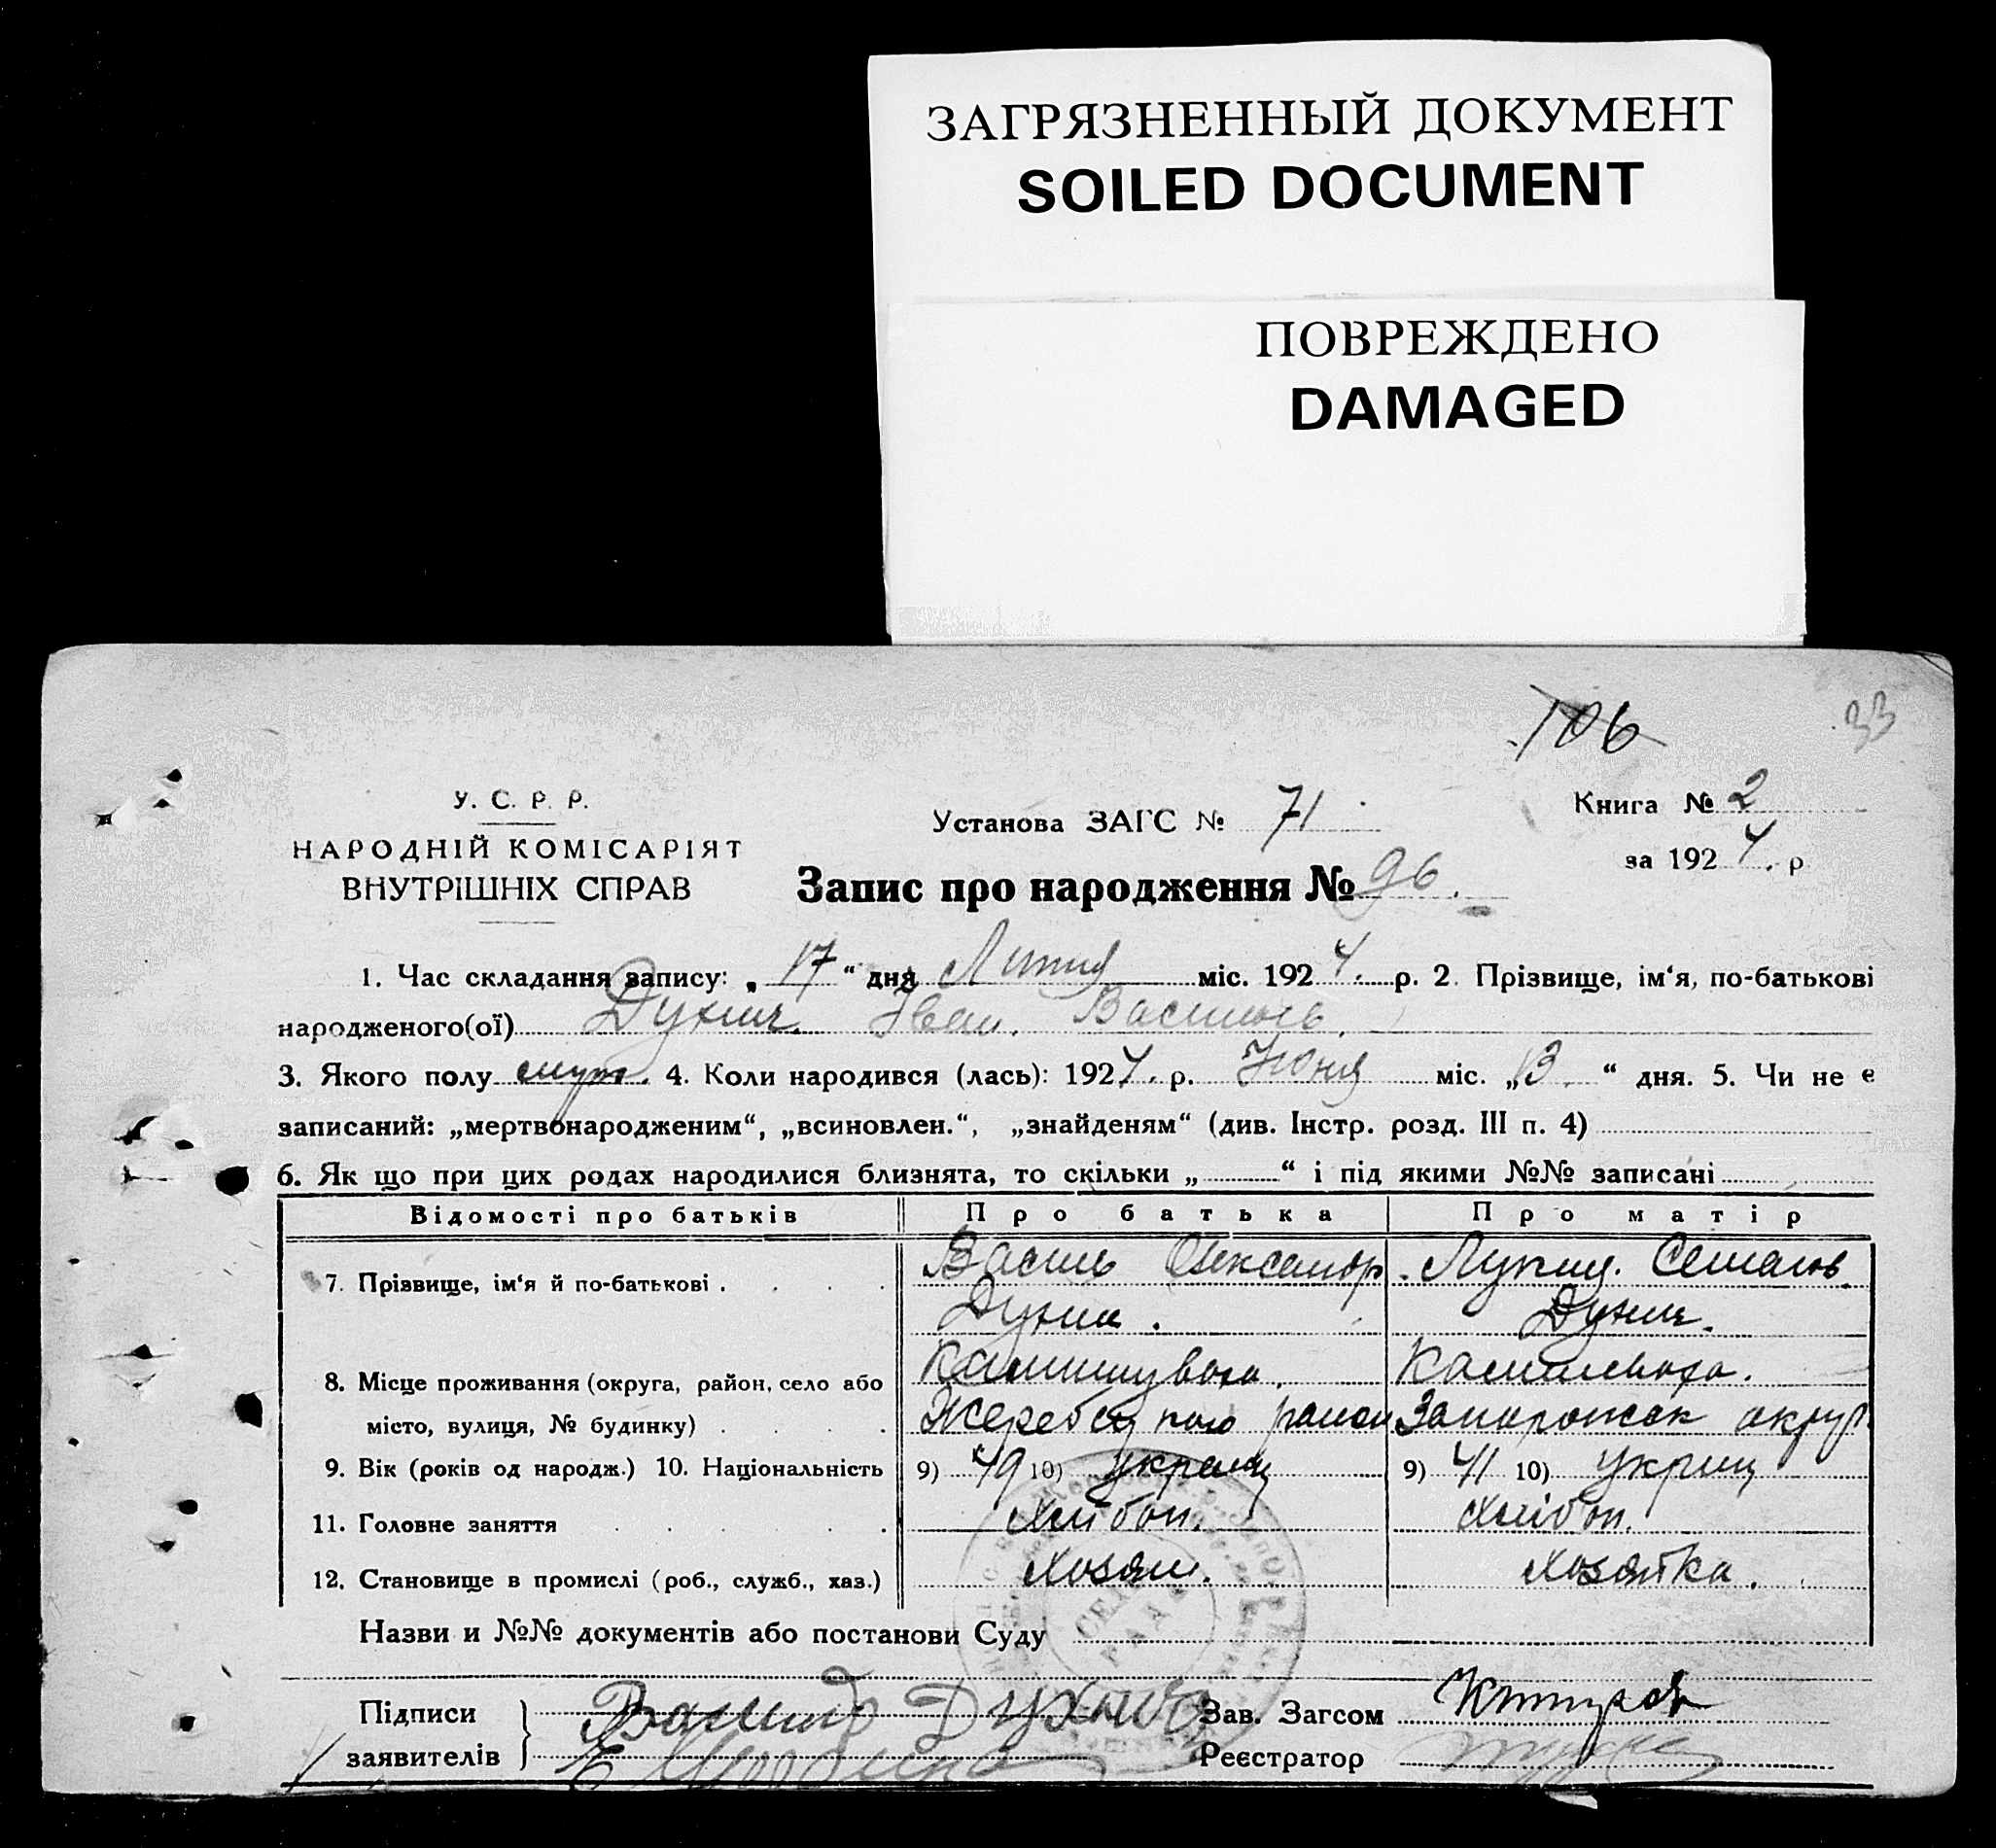 ЗАГРЯЗНЕННЫЙ ДОКУМЕНТ
SOILED DOCUMENT
ПОВРЕЖДЕНО
DAMAGED
106
33
У. С. Р. Р.
НАРОДНІЙ КОМІСАРІЯТ
ВНУТРІШНІХ СПРАВ
Установа ЗАГС № 71
Книга № 2
за 1924. р
Запис про народження № 96.
1. Час складання запису: „17“ дня Липня міс. 1924. р. 2. Прізвище, ім‘я, по-батькові
народженого(ої) Іван. Василів.
3. Якого полу муж. 4. Коли народився (лась): 1924. р. Июня міс. „13.“ дня. 5. Чи не є
записаний: „мертвонародженим“, „всиновлен.“, „знайденям“ (див. Інстр. розд. III п. 4)
6. Як що при цих родах народилися близнята, то скільки „ “ і під якими №№ записані
Відомості про батьків Про батька Про матір
7. Прізвище, ім‘я й по-батькові . Василь Олександр. Семенов.
8. Місце проживання (округа, район, село або Камишуваха. Камишеваха.
місто, вулиця, № будинку) Жеребецького район Запорожск округ.
9. Вік (років од народж.) 10. Національність 9) 49 10) украинц 9) 41 10) Украинц
11. Головне заняття Хлібоп. Хлібоп.
12. Становище в промислі (роб., служб., хаз.) Хозяин. Хозяйка.
Назви и №№ документів або постанови Суду
Підписи Зав. Загсом
заявителів Реєстратор